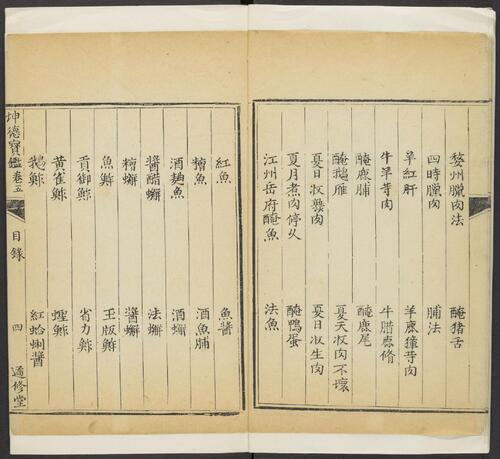 婺州臘肉法
醃猪舌
四時臘肉
脯法
羊紅肝
羊鹿獐等肉
牛羊等肉
牛腊鹿脩
醃鹿脯
醃鹿尾
醃鵝雁
夏天收肉不壞
夏日收熟肉
夏日收生肉
夏月煮肉停久
醃鴨蛋
江州岳府醃魚
法魚
紅魚
魚醬
糟魚
酒魚脯
酒麯魚
酒蠏
醬醋蠏
法蠏
糟蠏
醬蠏
魚鮓
玉版鮓
貢御鮓
省力鮓
黃雀鮓
蟶鮓
鵝鮓
紅蛤蜊醬
坤德寶鑑卷五
目錄
四
適修堂